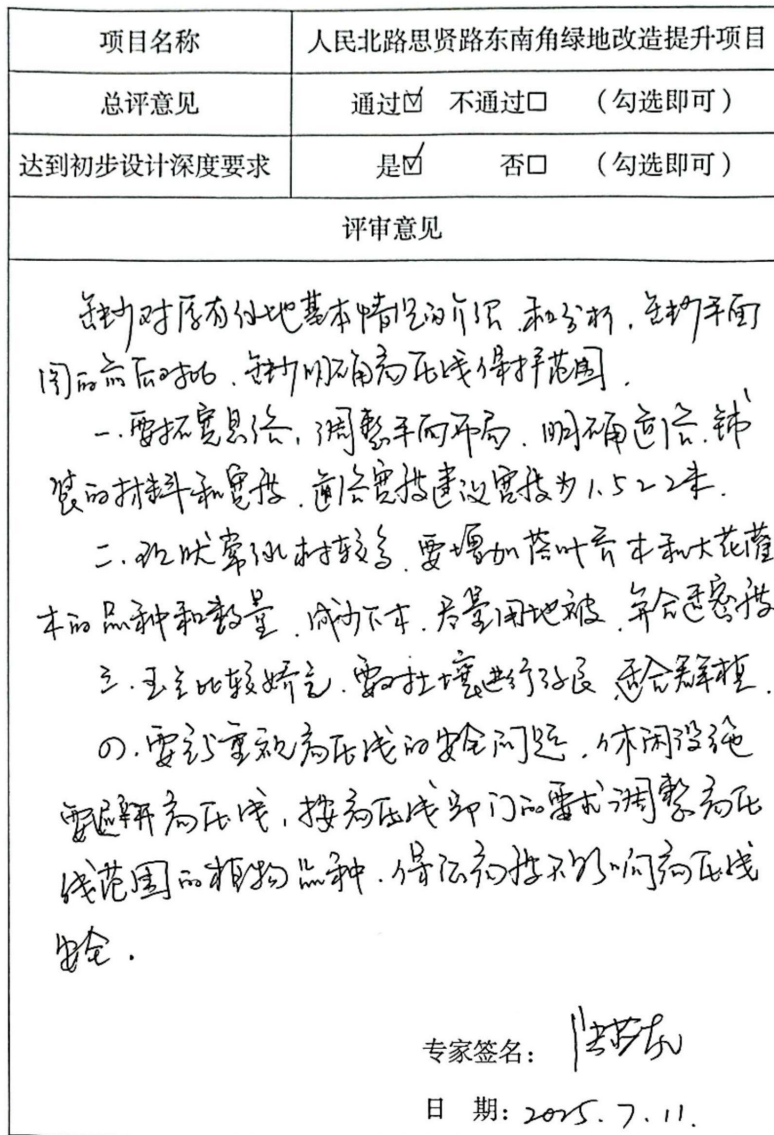 项目名称 人民北路思贤路东南角绿地改造提升项目
总评意见 通过☑ 不通过□ （勾选即可）
达到初步设计深度要求 是☑ 否□ （勾选即可）
评审意见
缺少对原有绿地基本情况的介绍和分析，缺少平面
图的前后对比，缺少明确高压线保护范围。
一．要拓宽思路，调整平面布局，明确道路、铺
装的材料和宽度，道路宽度建议宽度为1.5~2米．
二．现状常绿树较多，要增加落叶乔木和大花灌
木的品种和数量，减少下木，尽量用地被，并合适密度
三．玉兰比较娇气，要对土壤进行改良，适合群植．
四．要重视高压线的安全问题，休闲设施
要避开高压线，按高压线部门的要求调整高压
线范围的植物品种，保证高度不影响高压线
安全．
专家签名：
日 期：2025．7．11．